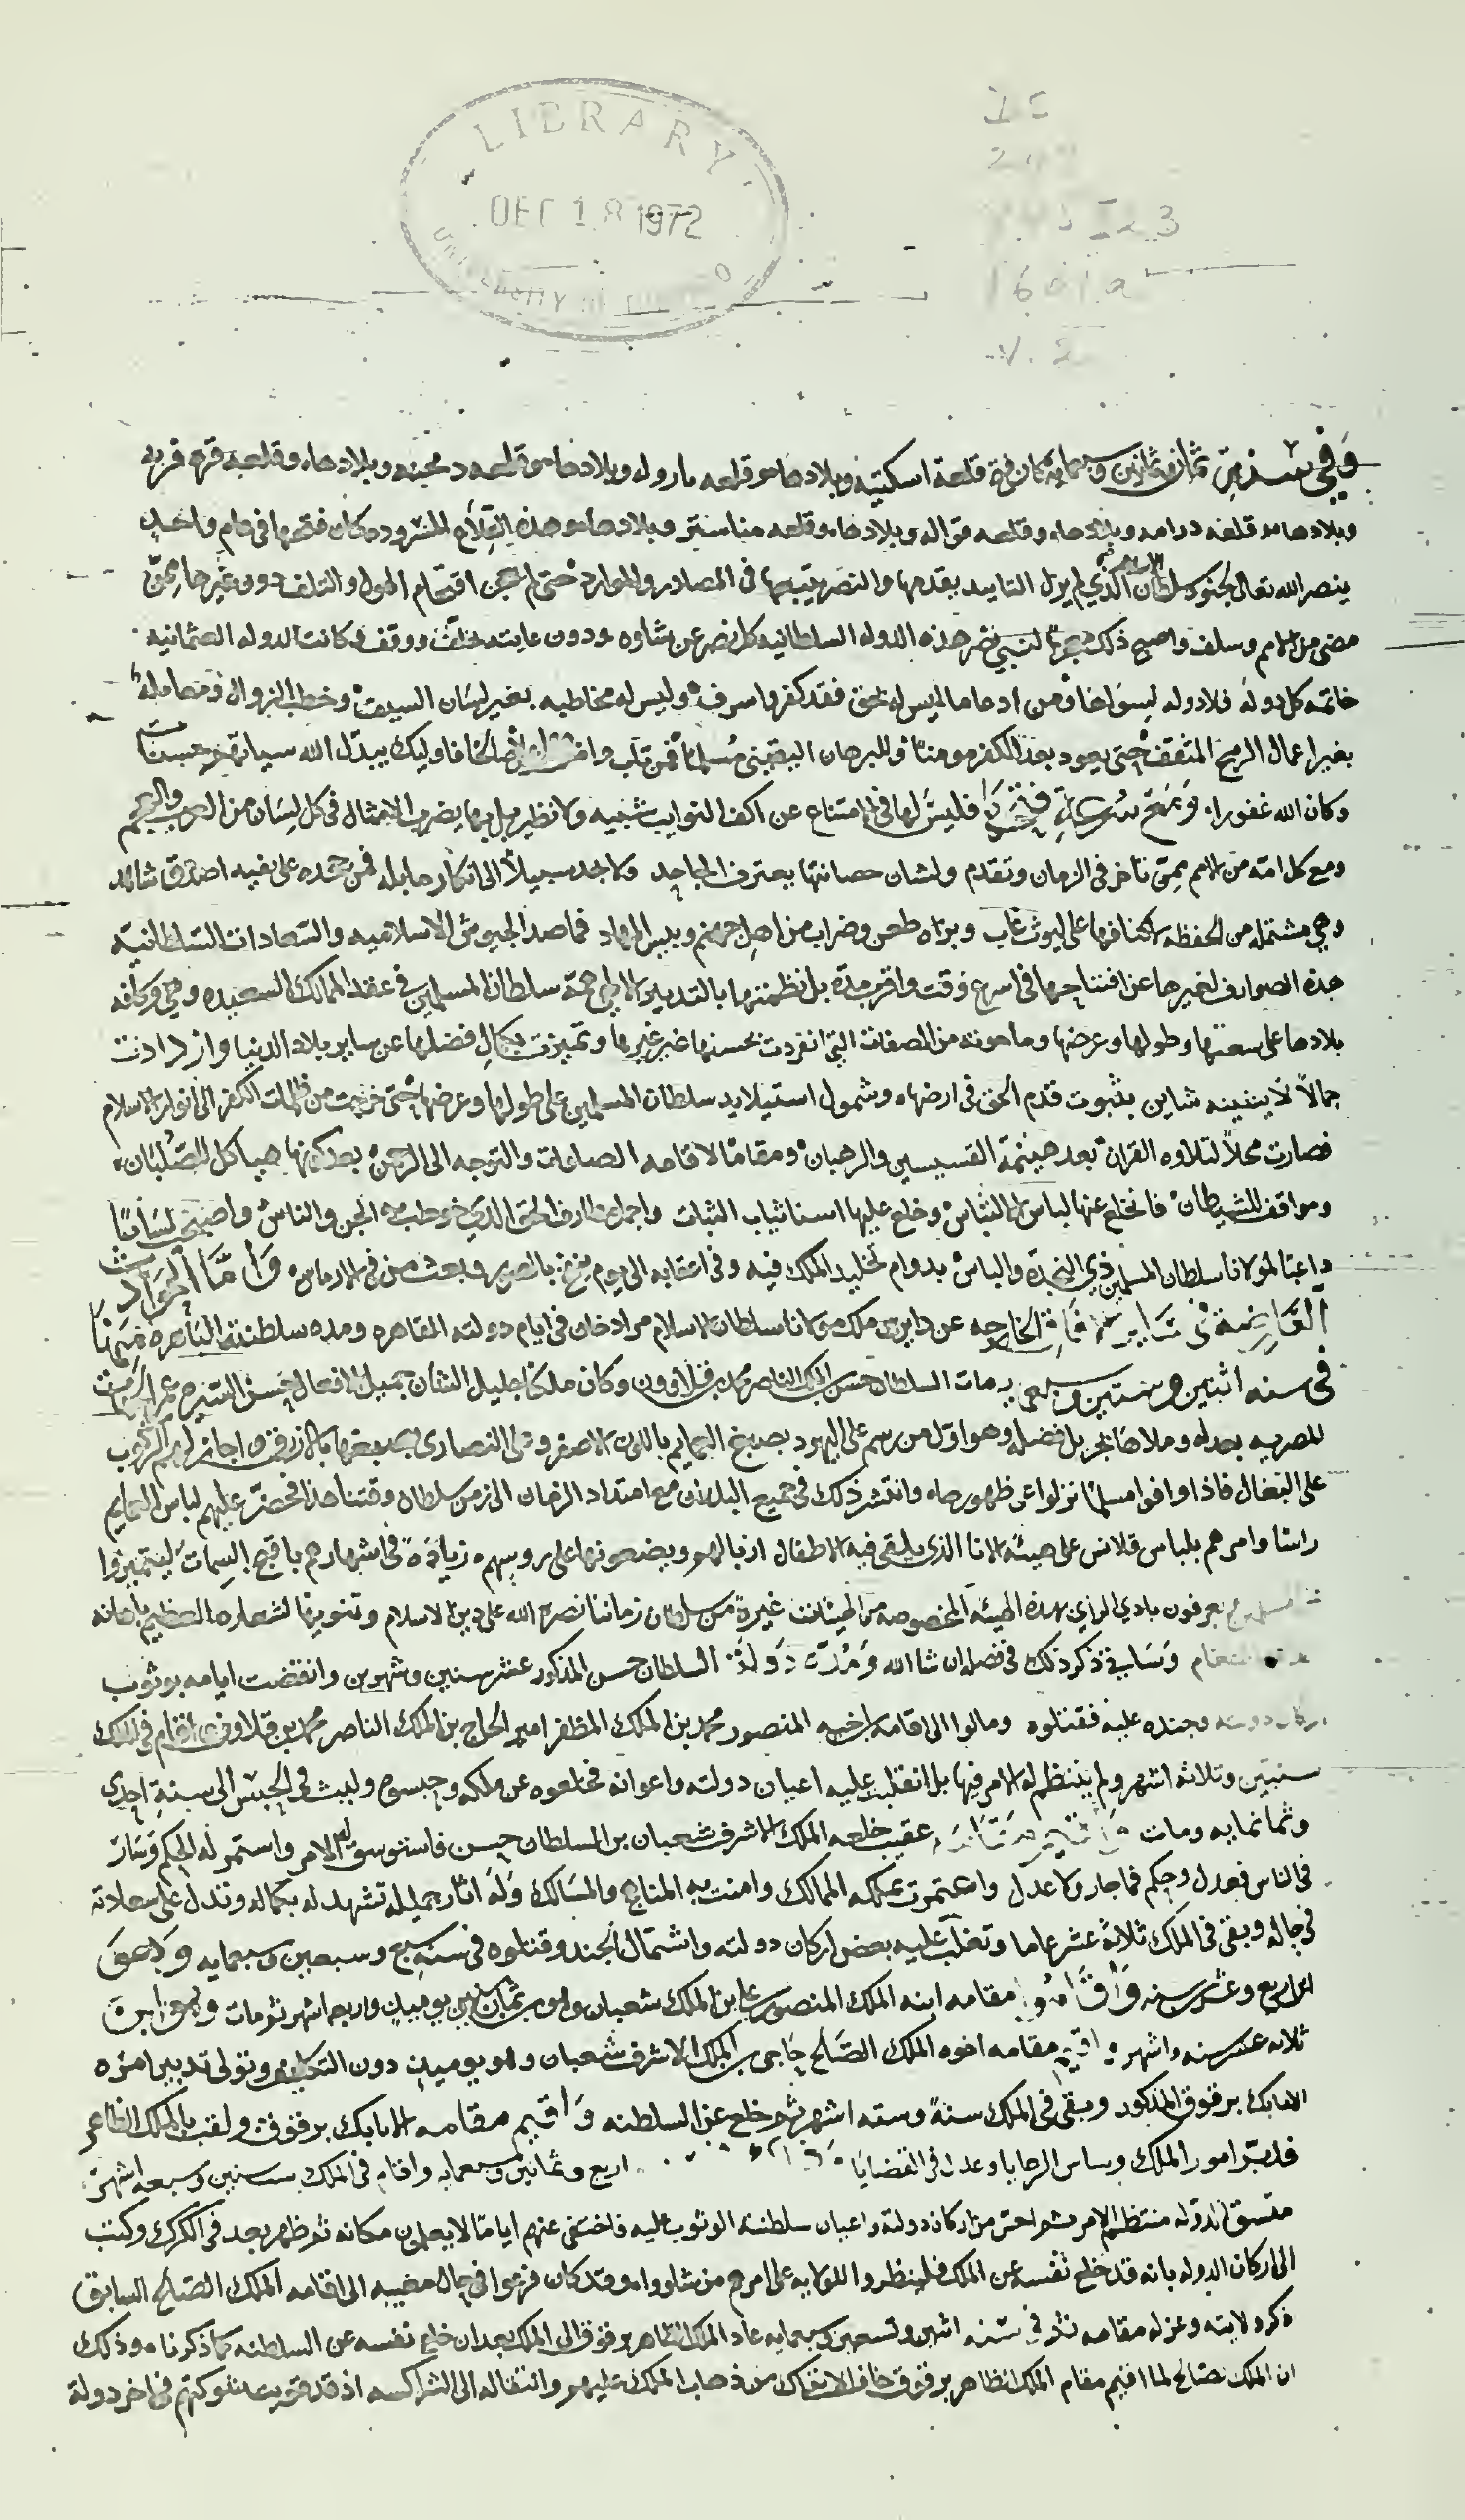 LIBRARY
DEC 18 1972
وفي سنة ثمان وثمانين وسبعمايه كان فتح قلعة اسكتيه وبلادها وقلعه ماروله وبلادها وقلعه وبلادها وقلعة قره فريه
وبلادها وقلعه درامه وبلادها وقلعه قواله وبلادها وقلعه مناستر وبلادها وهذه القلاع المسروده كان فتحها في عام واحد
ينصر الله تعالى لجنود سلطان الاسلام الذي لم يزل التاييد يقدمها والنصر يتبعها في المصادر والموارد حتى لم اقتحام الهول والتلف دون غيرها ممن
مضى من الامم وسلف واصبح ذلك هذه الدوله السلطانيه كل نصر عن شاوه ودون غايته تخلف ووقف وكانت الدوله العثمانيه
خاتمة كل دوله فلا دوله لسواها ومن ادعى ما ليس له بحق فقد كفر واسرف وليس له مخاطبه بغير لسان السيف وخطب النزوال ومعامله
بغير اعمال الرمح المثقف حتى يعود بعد الكفر مومنا وللبرهان اليقيني مسلما فمن تاب وامن وعمل صالحا فاوليك يبدل الله سياتهم حسنات
وكان الله غفورا فليس لها في الامتناع عن اكف النوايب شبيه ولا نظير بل بها يضرب الامثال في كل لسان من العرب والعجم
ومع كل امة من الامم ممن تاخر في الزمان وتقدم ولشان حصانتها يعترف الجاحد ولا يجد سبيلا الى انكار ما به له فمن جحده على نفيه اصدق شاهد
وهي مشتمله من الحفظه لاكنافها على ليوث غاب وبزاه طعن وضراب من اهل جهنم وبيس المهاد فما صد الجيوش الاسلاميه والسعادات السلطانية
هذه الصوارف لغيرها عن افتتاحها في اسرع وقت واقرب مدة بل نظمتها بالتدبير الالهي همة سلطان المسلمين في عقد الممالك السعيده وهي وكافه
بلادها على سعتها وطولها وعرضها وما حوته من الصفات التي انفردت بحسنها غير غيرها وتميزت بكمال فضلها عن ساير بلاد الدنيا وازدادت
جمالا لا يشينه شاين بثبوت قدم الحق في ارضها وشمول استيلا يد سلطان المسلمين على طولها وعرضها حتى خرجت من ظلمات الكفر الى انوار الاسلام
فصارت محلا لتلاوه القران بعد هينمة القسيسين والرهبان ومقاما لاقامه الصلوات والتوجه الى الرحمن بعد كونها هياكل للصلبان
ومواقف للشيطان فانخلع عنها لباس الالتباس وخلع عليها اسنا ثياب الثبات الحق الذي خوطب به الجن والناس واصبحت لسانا
داعيا لمولانا سلطان المسلمين ذي النجدة والباس بدوام تخليد الملك فيه وفي اعقابه الى يوم ينفخ بالصور ويبعث من في الارماس واما الحوادث
العارضة في ساير الافاق الخارجه عن دايرة ملك مولانا سلطان الاسلام مراد خان في ايام دولته القاهره ومده سلطنته الباهره فمنها
في سنه اثنين وستين وسبعمايه مات السلطان حسن بن الملك الناصر محمد بن قلاوون وكان ملكا جليل الشان جميل الافعال حسن السيره
للمصريه بعدله وملاها بجزيل فضله وهو اول من رسم على اليهود بصبغ العمايم باللون الاصفر وعلى النصارى بصبغها بالازرق واجاز لهم الركوب
على البغال فاذا وافوا مسلما نزلوا عن ظهورها وانتشر ذلك في جميع البلدان مع امتداد الزمان الى زمن سلطان وقتنا هذا فحضر عليهم لباس العمايم
راسا وامرهم بلباس قلانس على هيئة الانا الذي يلقى فيه الاطفال ازبالهم ويضعونها على روسهم زيادة في اشهارهم باقبح السمات ليتميزوا
عن المسلمين ويعرفون بادي الراي بهذه الهيئه المخصوصه من الهيئات غيرة من سلطان زماننا نصره الله على دين الاسلام وتنويها لشعاره العظيم باهانه
وسياتي ذكر ذلك في فصله ان شا الله ومدة دولة السلطان حسن المذكور عشر سنين وشهرين وانقضت ايامه بوثوب
اركان دولته وجنده عليه فقتلوه ومالوا الى اقامه ابن اخيه المنصور محمد بن الملك المظفر امير الحاج بن الملك الناصر محمد بن قلاوون فاقام في الملك
سنتين وثلاثة اشهر ولم ينتظم له الامر فيها بل انقلب عليه اعيان دولته واعوانه فخلعوه عن ملكه وحبسوه ولبث في الحبس الى سنة احدى
وثمانمايه ومات عقيب خلعه الملك الاشرف شعبان بن السلطان حسن فاستوسق له الامر واستمر له الحكم وسار
في الناس فعدل وحكم فما جار ولا عدل واعتمرت بملكه الممالك وامنت به المناهج والمسالك وله اثار جميله تشهد له بكماله وتدل على سعادته
في حاله وبقى في الملك ثلاثة عشر عاما وتغلب عليه بعض اركان دولته واشتمال الجند وقتلوه في سنة سبع وسبعين وسبعمايه وله عن
اربع وعشرين سنه واقاموا مقامه ابنه الملك المنصور علي بن الملك شعبان وهو بن ثمان سنين يوميذ واربعه اشهر ثم مات وله عن
ثلاثه عشر سنه واشهر واقيم مقامه اخوه الملك الصالح حاجي بن الملك الاشرف شعبان وهو يوميذ دون التكليف وتولى تدبير امره
الاتابك برقوق المذكور وبقى في الملك سنة وسته اشهر ثم خلع عن السلطنه واقيم مقامه الاتابك برقوق ولقب بالملك الظاهر
فدبر امور الملك وساس الرعايا وعدل في القضايا اربع وثمانين وسبعمايه واقام في الملك ست سنين وسبعه اشهر
متسق الدوله منتظم الامر ثم احس من اركان دولته واعيان سلطنته الوثوب عليه فاختفى عنهم اياما لا يعلمون مكانه ثم ظهر بعد في الكرك وكتب
الى اركان الدوله بانه قد خلع نفسه عن الملك فلينظروا للولايه على امرهم من شاوا وقد كان فزعوا في حال مغيبه الى اقامه الملك الصالح السابق
ذكر ولايته وعزله مقامه ثم في سنه اثنين وتسعين وسبعمايه عاد الملك الظاهر برقوق الى الملك بعد ان خلع نفسه عن السلطنه كما ذكرناه وذلك
ان الملك الصالح لما اقيم مقام الملك الظاهر برقوق خاف الاتراك من ذهاب الملك عليهم وانتقاله الى الشراكسه اذ قد قويت شوكتهم في اخر دولة